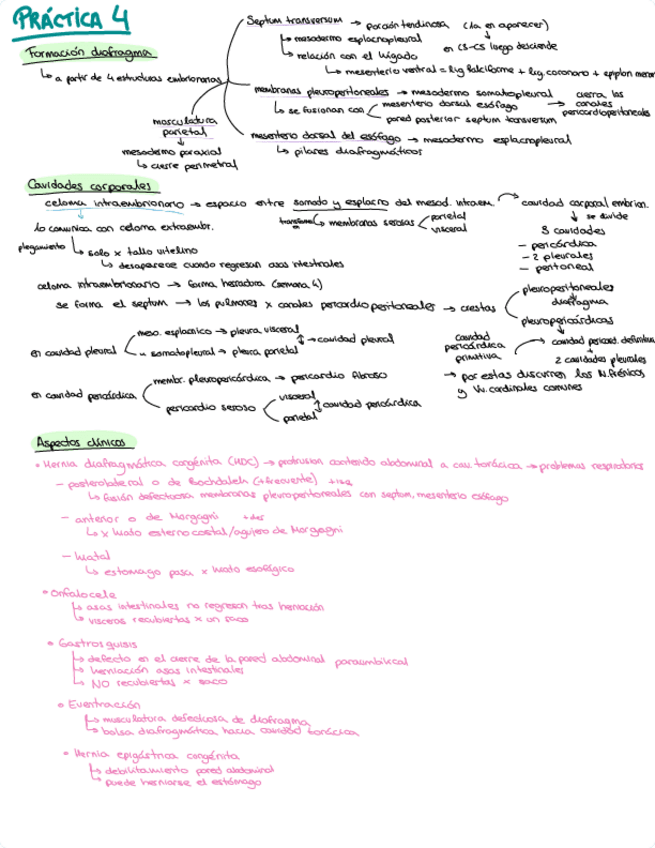 PRÁCTICA 4
Formación diafragma
↳ a partir de 4 estructuras embrionarias
Septum transversum → porción tendinosa (1a en aparecer)
↳ mesodermo esplacnopleural
en C3-C5 luego desciende
↳ relación con el hígado
↳ mesenterio ventral = lig falciforme + lig. coronario + epiplon menor
membranas pleuroperitoneales → mesodermo somatopleural → cierra los canales pericardioperitoneales
↳ se fusionan con mesenterio dorsal esófago
pared posterior septum transversum
mesenterio dorsal del esófago → mesodermo esplacnopleural
↳ pilares diafragmáticos
musculatura parietal
↓
mesodermo paraxial
↳ cierre perimetral
Cavidades corporales
celoma intraembrionario → espacio entre somato y esplacno del mesod. intraem. → cavidad corporal embrion.
↓ se divide
3 cavidades
- pericárdica
- 2 pleurales
- peritoneal
transforma ↳ membranas serosas parietal
visceral
lo comunica con celoma extraembr.
plegamiento ↳ solo x tallo vitelino
↳ desaparece cuando regresan asas intestinales
celoma intraembrionario → forma herradura (semana 4)
se forma el septum → los pulmones x canales pericardioperitoneales → crestas
pleuroperitoneales
↓
diafragma
pleuropericárdicas
↓
cavidad pericárdica primitiva → cavidad pericard. definitiva
2 cavidades pleurales
→ por estas discurren los N. frénicos y Vv. cardinales comunes
en cavidad pleural
meso. esplacnico → pleura visceral
↕ → cavidad pleural
" somatopleural → pleura parietal
en cavidad pericárdica
membr. pleuropericárdica → pericardio fibroso
pericardio seroso
visceral
↕ cavidad pericárdica
parietal
Aspectos clínicos
• Hernia diafragmática congénita (HDC) → protrusion contenido abdominal a cav. torácica → problemas respiratorios
- posterolateral o de Bochdalek (+ frecuente) + izq
↳ fusión defectuosa membranas pleuroperitoneales con septum, mesenterio esófago
- anterior o de Morgagni + der
↳ x hiato esternocostal/agujero de Morgagni
- hiatal
↳ estomago pasa x hiato esofágico
• Onfalocele
↳ asas intestinales no regresan tras herniación
↳ visceras recubiertas x un saco
• Gastrosquisis
↳ defecto en el cierre de la pared abdominal paraumbilical
↳ herniación asas intestinales
↳ NO recubiertas x saco
• Eventración
↳ musculatura defectuosa de diafragma
↳ bolsa diafragmática hacia cavidad torácica
• Hernia epigástrica congénita
↳ debilitamiento pared abdominal
↳ puede herniarse el estómago